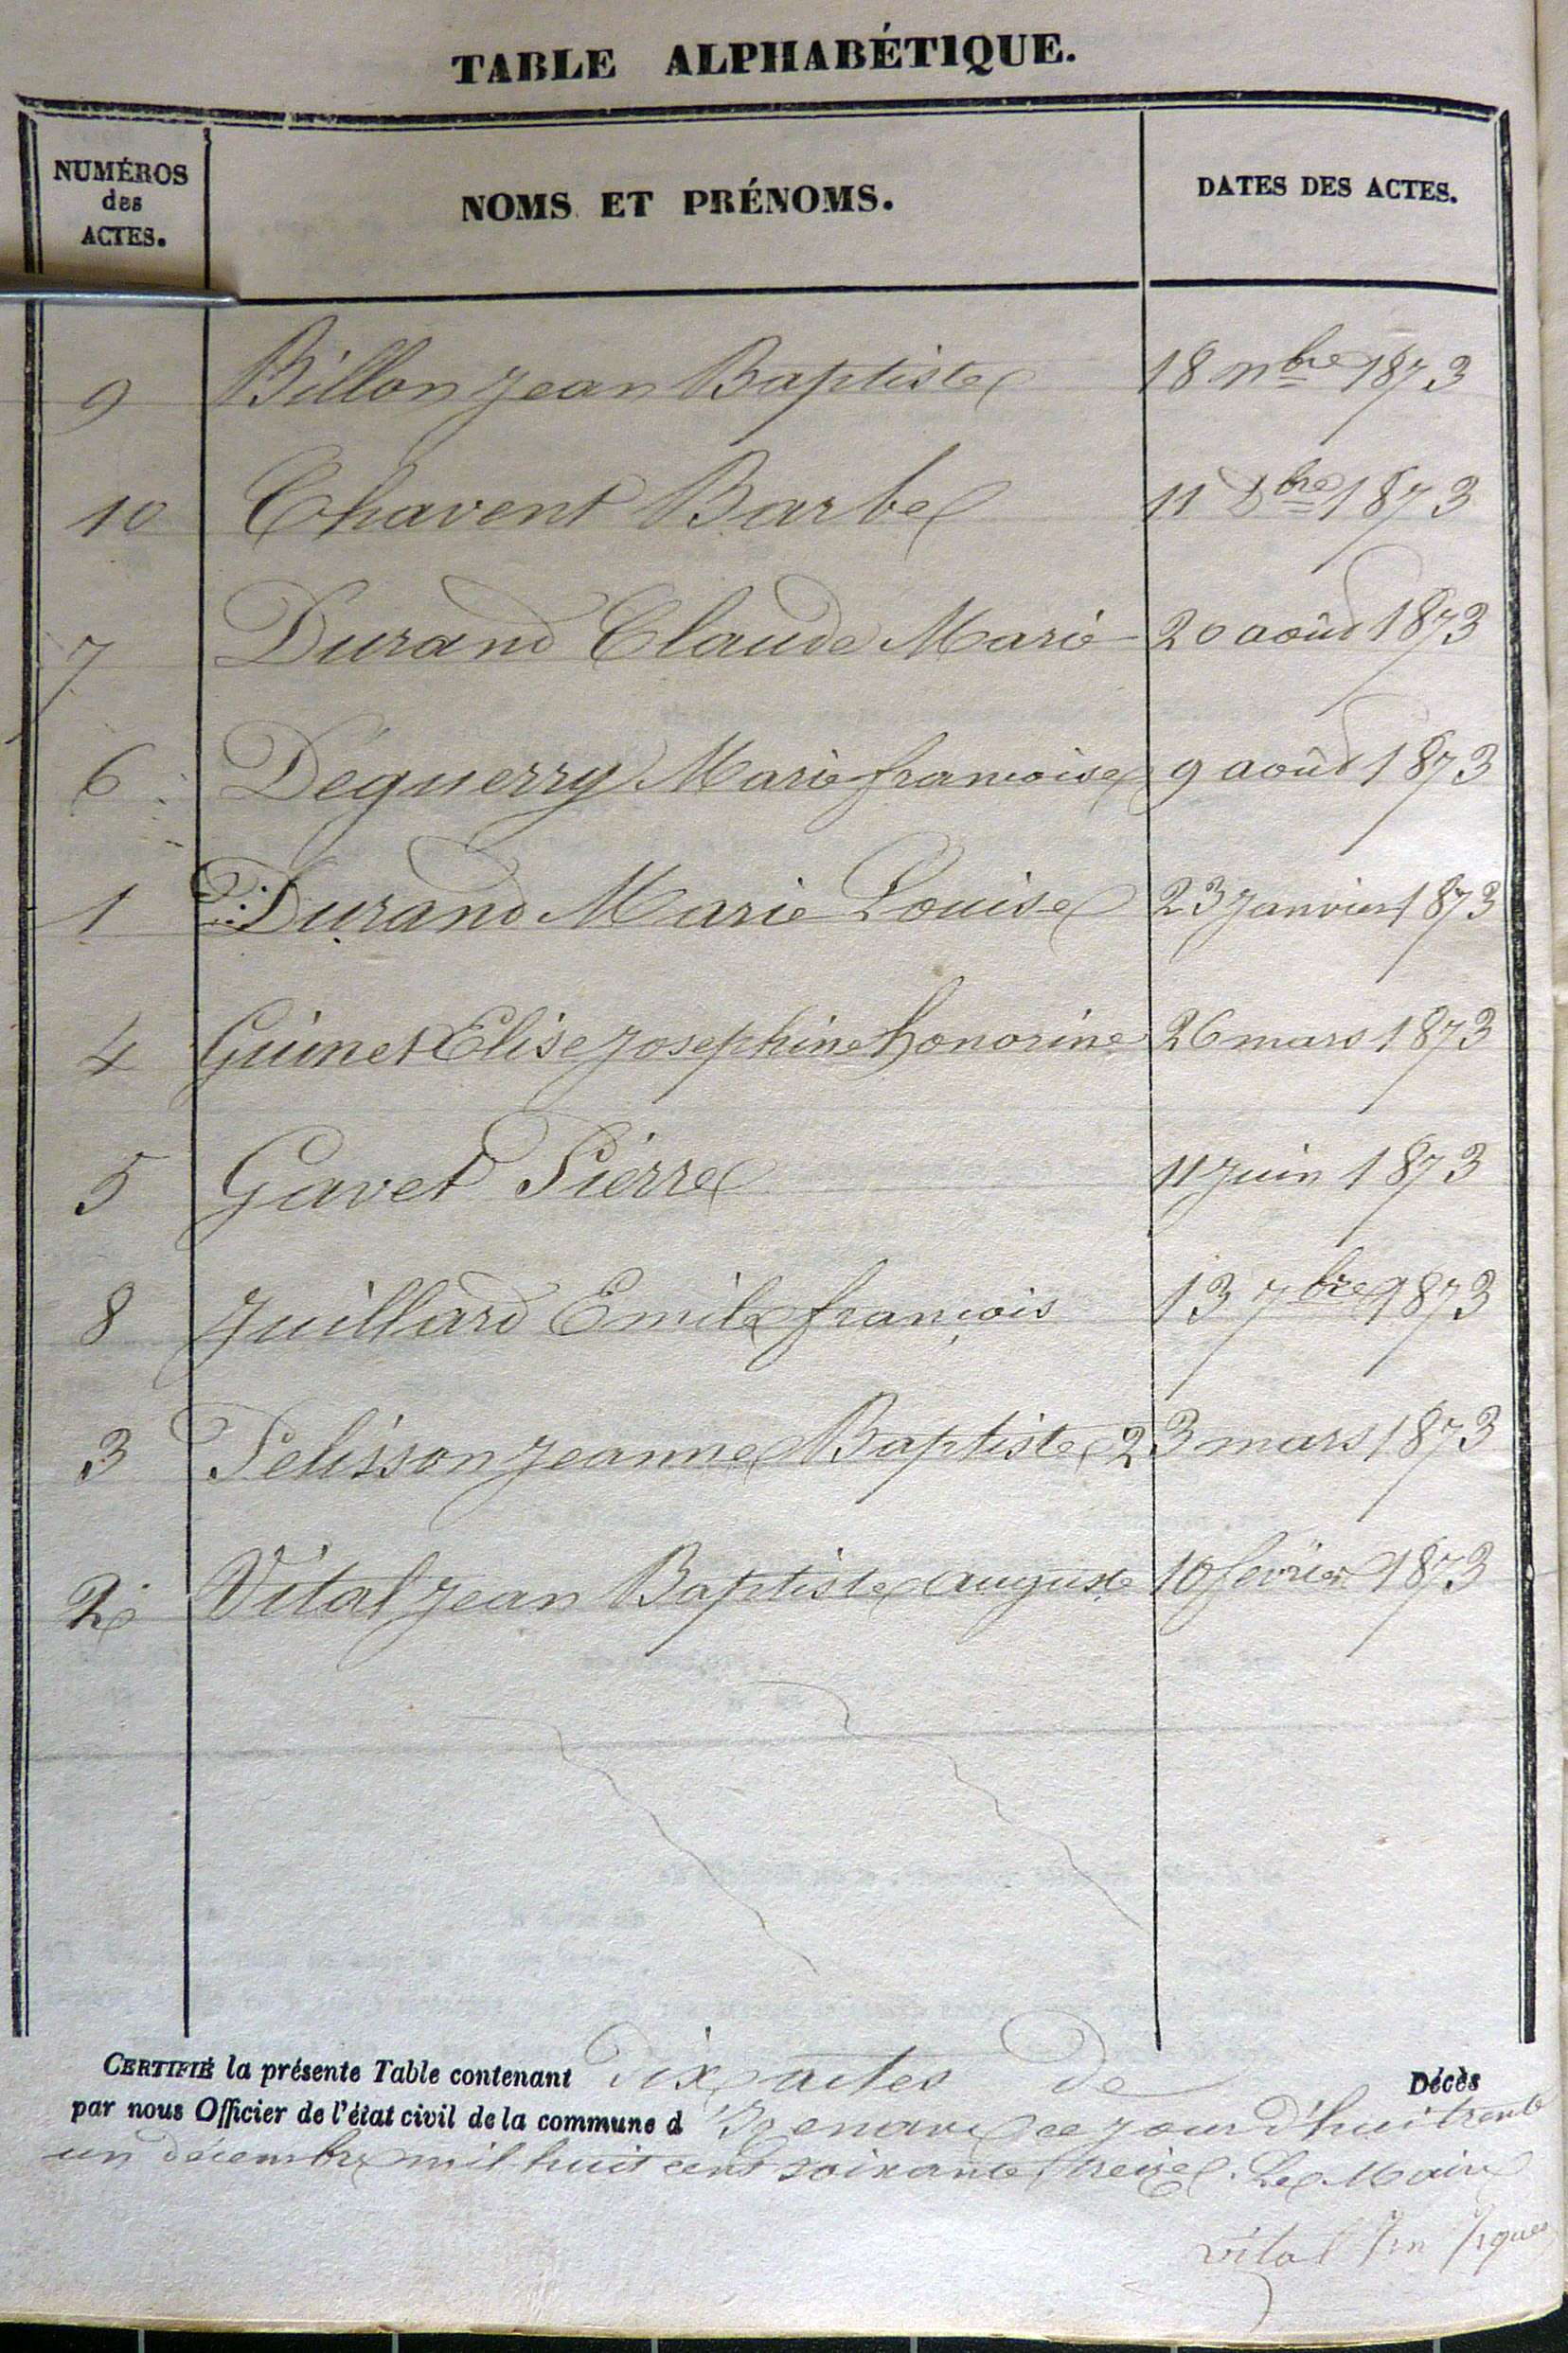 TABLE ALPHABÉTIQUE.
NUMÉROS des ACTES. NOMS ET PRÉNOMS. DATES DES ACTES.
9 Billon Jean Baptiste 18 nbre 1873
10 Chavent Barbe 11 Dbre 1873
7 Durand Claude Marie 20 août 1873
6 Déguerry Marie francoise 9 août 1873
1 Durand Marie Louise 23 Janvier 1873
4 Guinet Elise Josephine honorine 26 mars 1873
5 Gavet Pierre 11 Juin 1873
8 Juillard Emile françois 13 7bre 1873
3 Pelisson Jeanne Baptiste 23 mars 1873
2 Vital Jean Baptiste auguste 10 fevrier 1873
CERTIFIÉ la présente Table contenant Dix actes de Décès
par nous Officier de l'état civil de la commune d'Izenave ce jour d'hui trente
un décembre mil huit cent soixante treize. Le Maire
Vital